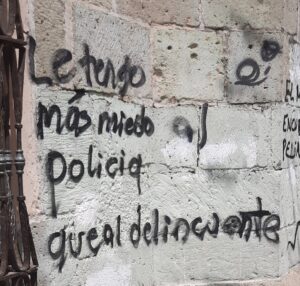 Le tengo
más miedo al
policia
que al delincuente
EL M
ENO
PEL